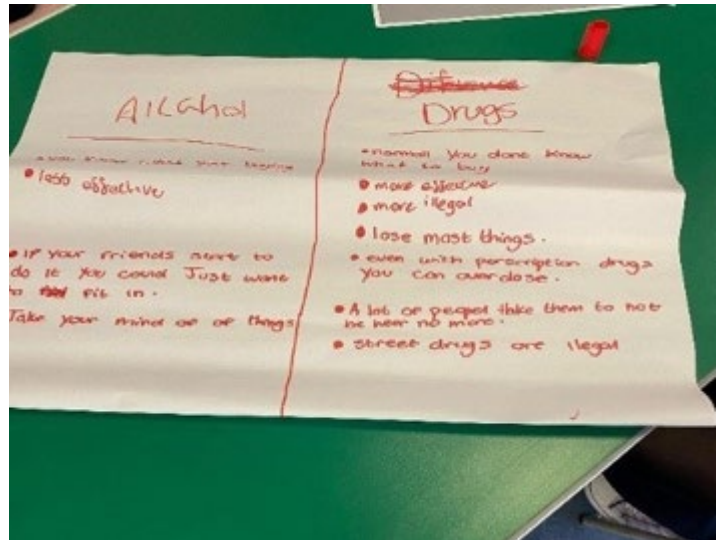 Alcahol
• you know what your buying
• less effective
• If your friends sure to
do it you could Just wane
to fit in.
Take your mind of of things
Diference
Drugs
• normall you done know
what to buy
• more effective
• more illegal
• lose most things.
• even with perscription drugs
you can overdose.
• A lot of peopel thke them to not
be hear no more.
• street drugs are ilegal